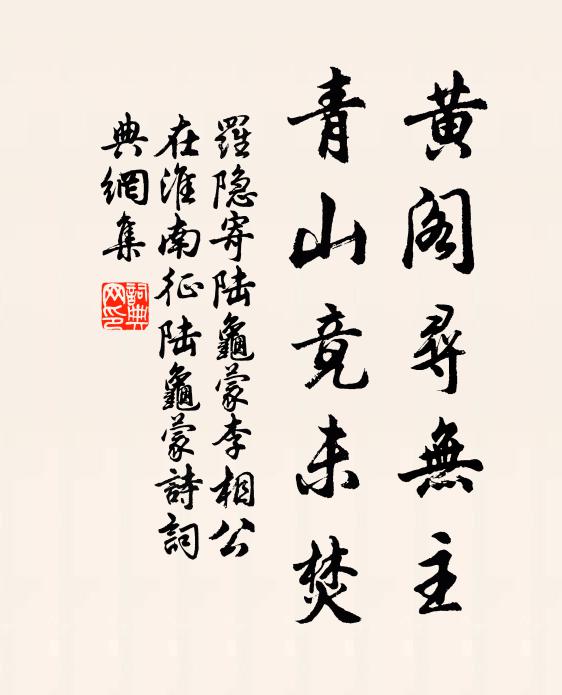 黃阁尋無主
青山竟未焚
羅隐寄陆龜蒙李相公
在淮南征陆龜蒙詩詞
典網集
詞典网印